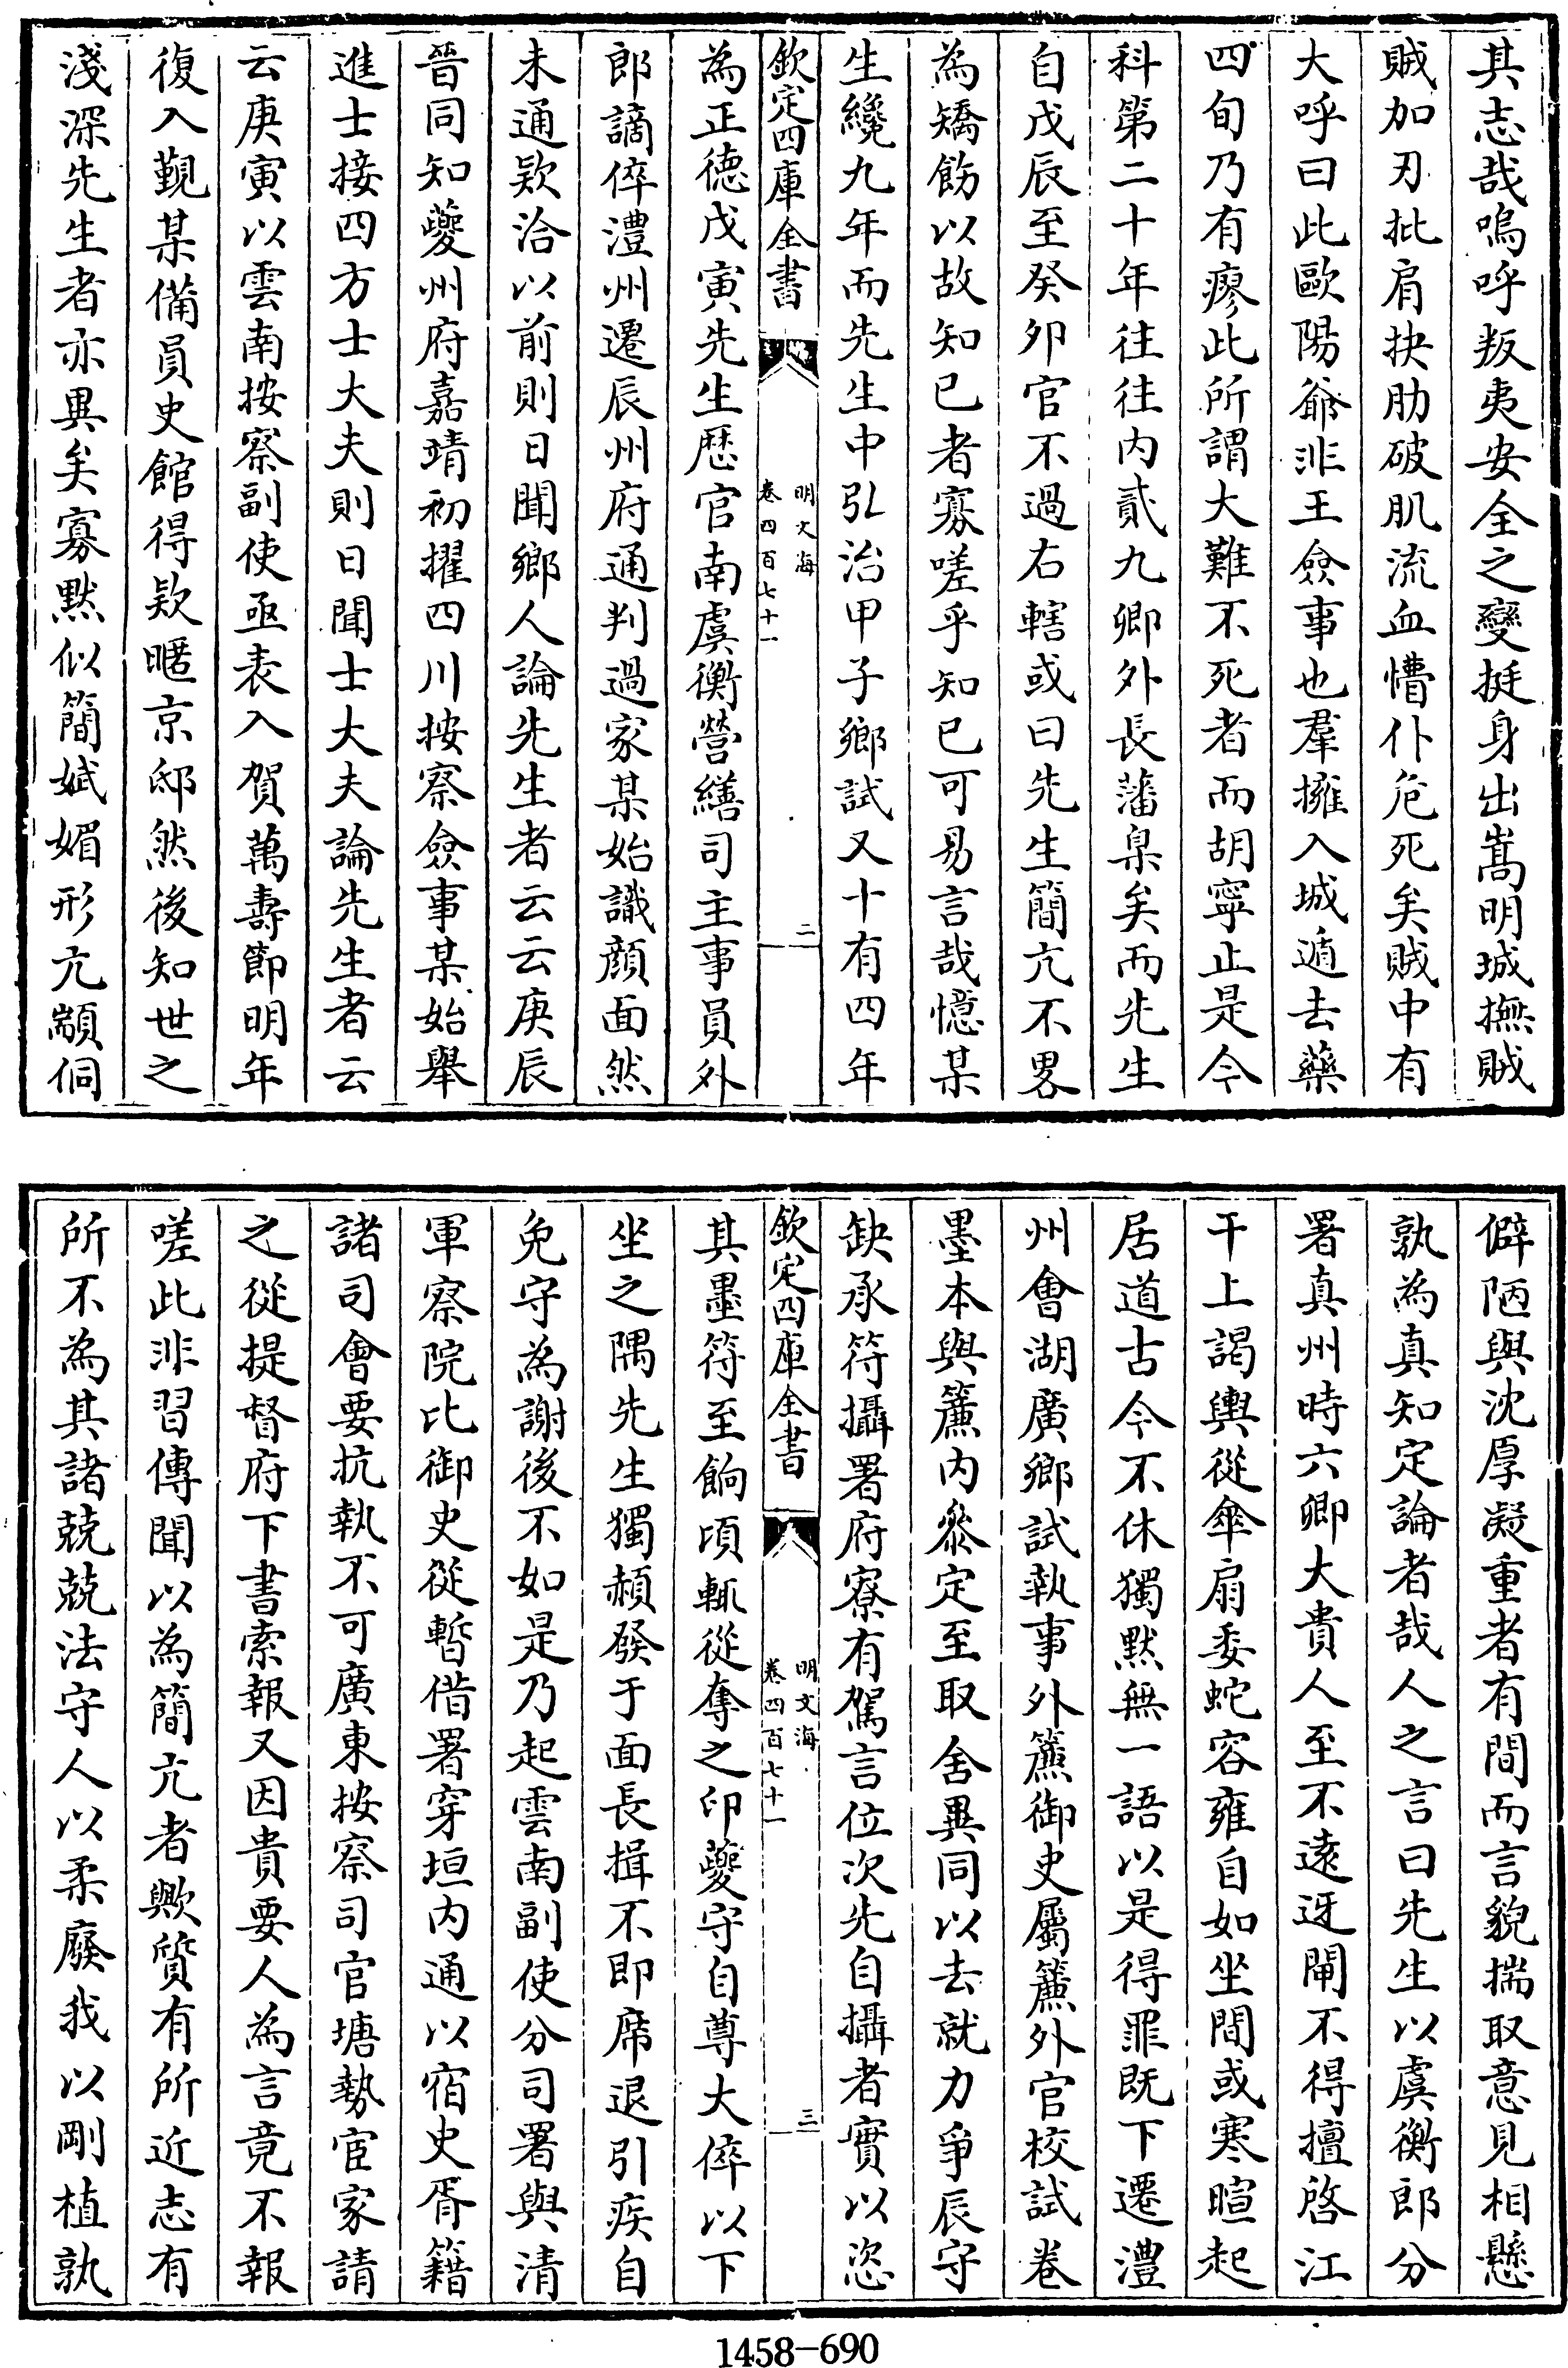 其志哉嗚呼叛夷安全之變挺身出嵩明城撫賊
賊加刃批肩抉肋破肌流血懵仆危死矣賊中有
大呼曰此歐陽爺非王僉事也羣擁入城遁去藥
四旬乃有瘳此所謂大難不死者而胡寧止是今
科第二十年往往内貳九卿外長藩臬矣而先生
自戊辰至癸卯官不過右轄或曰先生簡亢不畧
為矯飭以故知已者寡嗟乎知已可易言哉憶某
生纔九年而先生中弘治甲子鄉試又十有四年
欽定四庫全書
明文海
卷四百七十一
二
為正德戊寅先生歷官南虞衡營繕司主事員外
郎謫倅澧州遷辰州府通判過家某始識顔面然
未通欵洽以前則日聞鄉人論先生者云云庚辰
晉同知夔州府嘉靖初擢四川按察僉事某始舉
進士接四方士大夫則日聞士大夫論先生者云
云庚寅以雲南按察副使亟表入賀萬壽節明年
復入覲某備員史館得欵暱京邸然後知世之
淺深先生者亦異矣寡黙似簡娬媚形亢顓侗
僻陋與沈厚凝重者有間而言貌揣取意見相懸
孰為真知定論者哉人之言曰先生以虞衡郎分
署真州時六卿大貴人至不遠迓閘不得擅啓江
干上謁輿從傘扇委蛇容雍自如坐間或寒暄起
居道古今不休獨黙無一語以是得罪既下遷澧
州會湖廣鄉試執事外簾御史屬簾外官校試卷
墨本與簾内叅定至取舍異同以去就力爭辰守
缺承符攝署府寮有駕言位次先自攝者實以恣
欽定四庫全書
明文海
卷四百七十一
三
其墨符至餉頃輒從奪之印夔守自尊大倅以下
坐之隅先生獨頳發于面長揖不即席退引疾自
免守為謝後不如是乃起雲南副使分司署與清
軍察院比御史從暫借署穿垣内通以宿史胥籍
諸司會要抗執不可廣東按察司官塘勢宦家請
之從提督府下書索報又因貴要人為言竟不報
嗟此非習傳聞以為簡亢者歟質有所近志有
所不為其諸兢兢法守人以柔廢我以剛植孰
1458-690